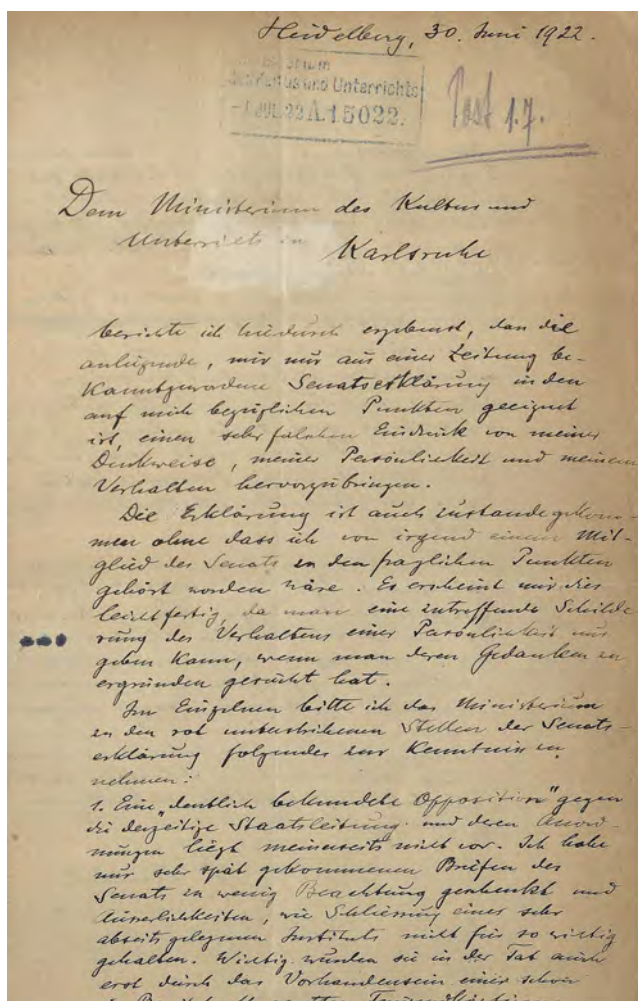 Heidelberg, 30. Juni 1922.
Ministerium
des Kultus und Unterrichts
-1. JUL. 22 A.15022.
Post 1.7.
Dem Ministerium des Kultus und
Unterrichts in
Karlsruhe
berichte ich hiedurch ergebenst, dass die
anliegende, mir nur aus einer Zeitung be-
kanntgewordene Senatserklärung in den
auf mich bezüglichen Punkten geeignet
ist, einen sehr falschen Eindruck von meiner
Denkweise, meiner Persönlichkeit und meinem
Verhalten hervorzubringen.
Die Erklärung ist auch zustande gekom-
men ohne dass ich von irgend einem Mit-
glied des Senats in den fraglichen Punkten
gehört worden wäre. Es erscheint mir dies
leichtfertig, da man eine zutreffende Schilde
rung des Verhaltens einer Persönlichkeit nur
geben kann, wenn man deren Gedanken zu
ergründen gesucht hat.
Im Einzelnen bitte ich das Ministerium
zu den rot unterstrichenen Stellen der Senats-
erklärung folgendes zur Kenntnis zu
nehmen:
1. Eine „deutlich bekundete Opposition" gegen
die derzeitige Staatsleitung und deren Anord-
nungen liegt meinerseits nicht vor. Ich habe
nur sehr spät gekommenen Briefen des
Senats zu wenig Beachtung geschenkt und
Äusserlichkeiten, wie Schliessung eines sehr
abseits gelegenen Instituts nicht für so wichtig
gehalten. Wichtig wurden sie in der Tat auch
erst durch das Vorhandensein einer schon